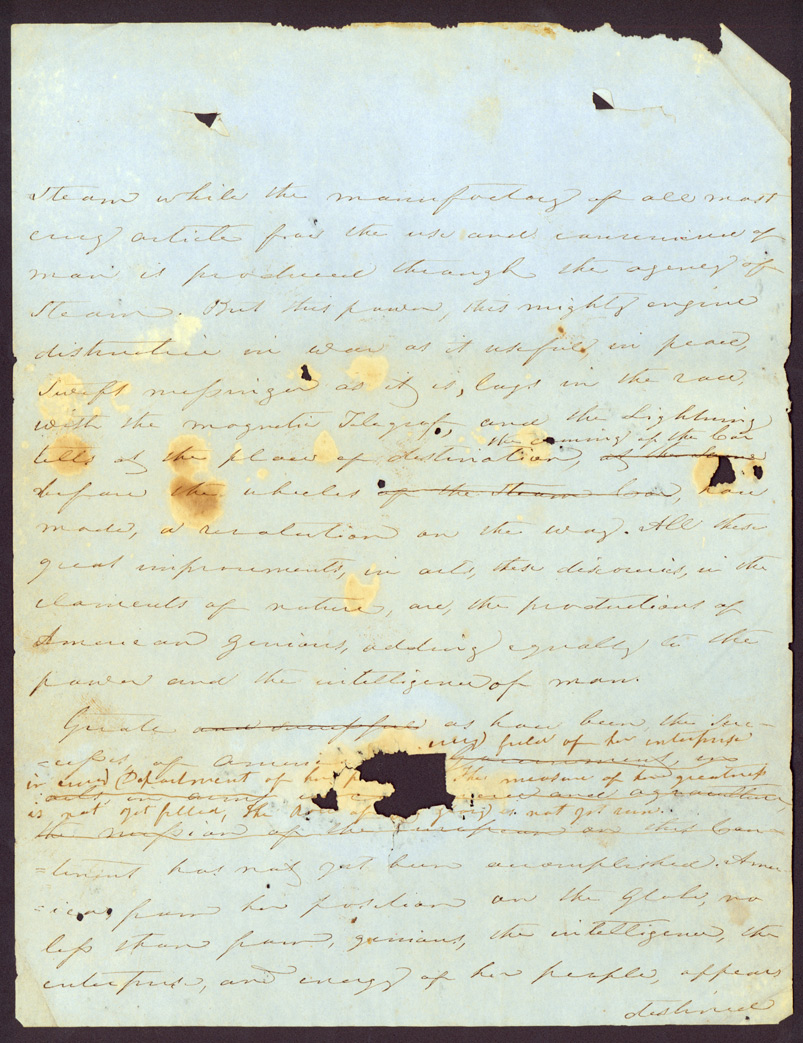 Steam while the manufactory of all most
every article for the use and convenience of
man is produced through the agency of
Steam. But this power, this mighty engine
distructive in war as it useful, in peace,
Swift messinger as it is, lags in the race,
with the magnetic Telegraf, and the Lightning
the coming of the Car
tells at the place of destination,
before the wheeles of the Steam Car, have
made, a revolution on the way. All these
great improvements, in arts, these discoveries, in the
elements of nature, are, the productions of
American Genious, adding equally to the
power and the intelligence of man.
Greate as have been the suc-
=cesses of America every field of her interprise
in every Department of her The measure of her greatness
arts in arms and agriculture,
is not yet filled, the is not yet run
the mission of the European on this Con-
=tinent has not yet been accomplished. Amer-
=ica, from her position on the Globe, no
less than from, genious, the intelligence, the
enterprise, and energy of her people, appears
destined